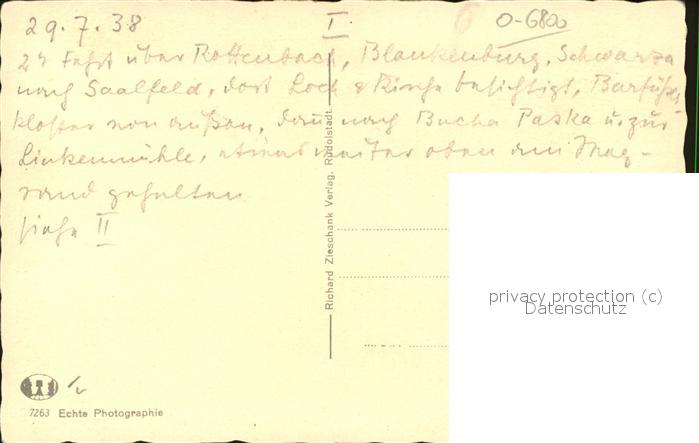 29.7.38
I
6
O-6800
Fahrt über Rottenbach, Blankenburg, Schwarza
nach Saalfeld, dort & Kirche besichtigt, Barfüßer
kloster von außen, dann nach Bucha Paska u. zur
Linkenmühle, etwas weiter oben am
rand gehalten
siehe II
Richard Zieschank Verlag, Rudolstadt
privacy protection (c)
Datenschutz
7263 Echte Photographie